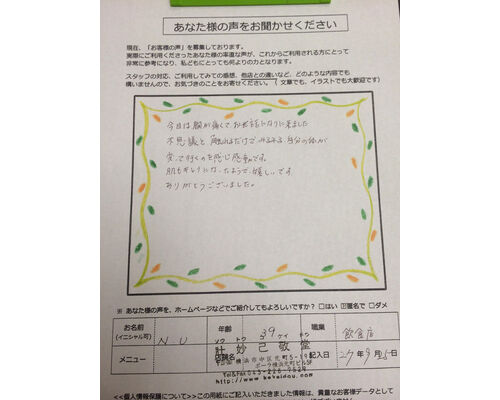 あなた様の声をお聞かせください
現在、「お客様の声」を募集しております。
実際にご利用くださったあなた様の率直な声が、これからご利用される方にとって
非常に参考になり、私どもにとっても何よりの力となります。
スタッフの対応、ご利用してみての感想、他店との違いなど、どのような内容でも
構いませんので、お気づきのことをお寄せください。（文章でも、イラストでも大歓迎です）
今日は腕が痛くてお世話になりに来ました
不思議と触れるだけでみるみる自分の体が
変って行くのを感じ感動です。
肌もキレイになったようで、嬉しいです
ありがとうございました。
※ あなた様の声を、ホームページなどでご紹介してもよろしいですか？ □はい ☑匿名で □ダメ
お名前 N U 年齢 39 職業 飲食店
(イニシャル可)
メニュー 店舗名 妙 己 敬 堂 記入日 27年 9月 25日
横浜市中区元町5-19
ポーラ横浜元町ビル5F
Tel&Fax
<<個人情報保護について>> この用紙にご記入いただきました情報は、貴重なお客様データとして